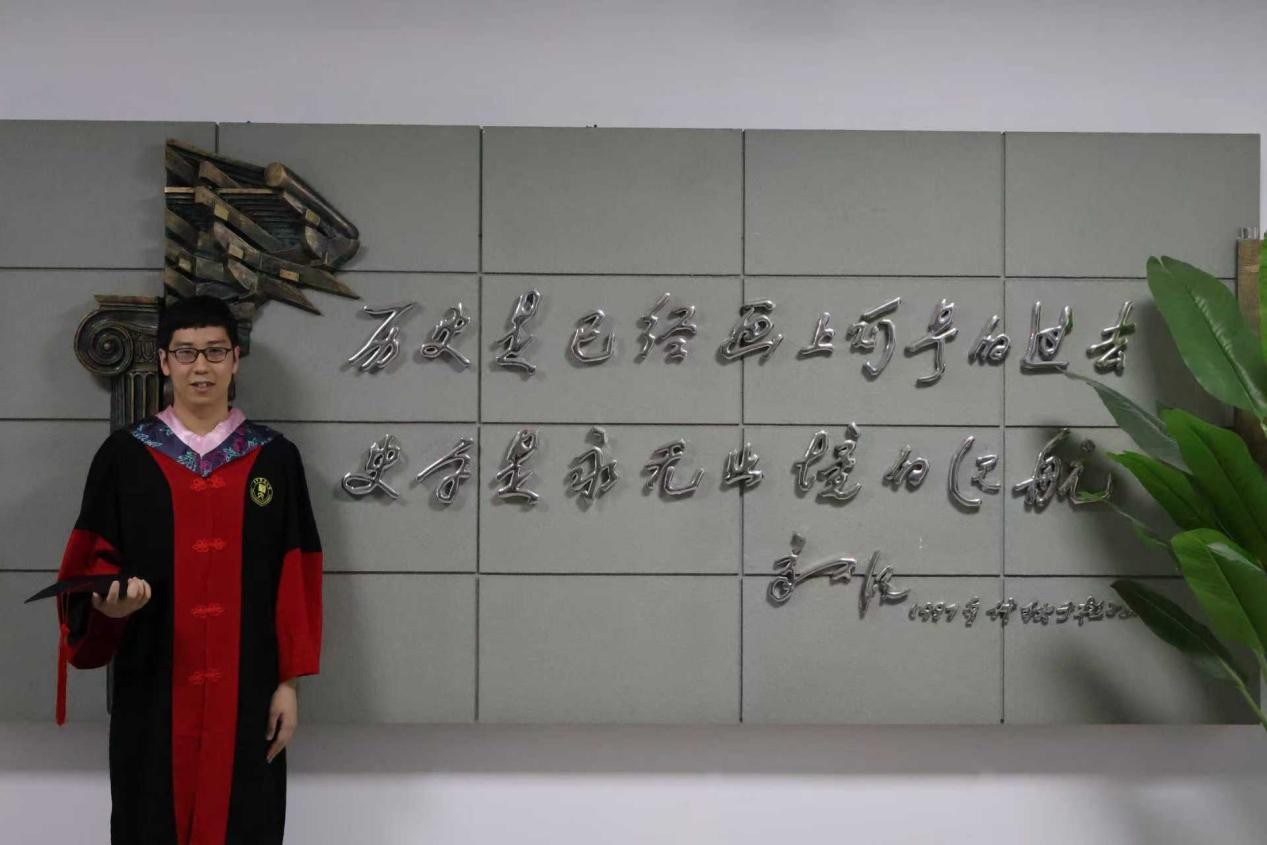 历史是已经画上句号的过去
史学是永无止境的远航
章开沅
1997年